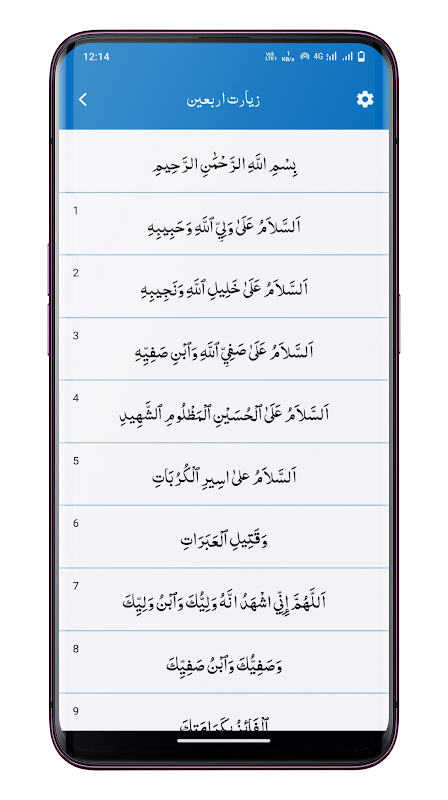 12:14
Vo) LTE1
1 KB/s
4G
زیارت اربعین
بِسْمِ اللَّهِ الرَّحْمَٰنِ الرَّحِيمِ
1
اَلسَّلاَمُ عَلَىٰ وَلِيِّ ٱللَّهِ وَحَبِيبِهِ
2
اَلسَّلاَمُ عَلَىٰ خَلِيلِ ٱللَّهِ وَنَجِيبِهِ
3
اَلسَّلاَمُ عَلَىٰ صَفِيِّ ٱللَّهِ وَٱبْنِ صَفِيِّهِ
4
اَلسَّلاَمُ عَلَىٰ ٱلْحُسَيْنِ ٱلْمَظْلُومِ ٱلشَّهِيدِ
5
اَلسَّلاَمُ علىٰ اسِيرِ ٱلْكُرُبَاتِ
6
وَقَتِيلِ ٱلْعَبَرَاتِ
7
اَللَّهُمَّ إِنِّي اشْهَدُ انَّهُ وَلِيُّكَ وَٱبْنُ وَلِيِّكَ
8
وَصَفِيُّكَ وَٱبْنُ صَفِيِّكَ
9
ٱلْفَائِزُ بِكَرَامَتِكَ